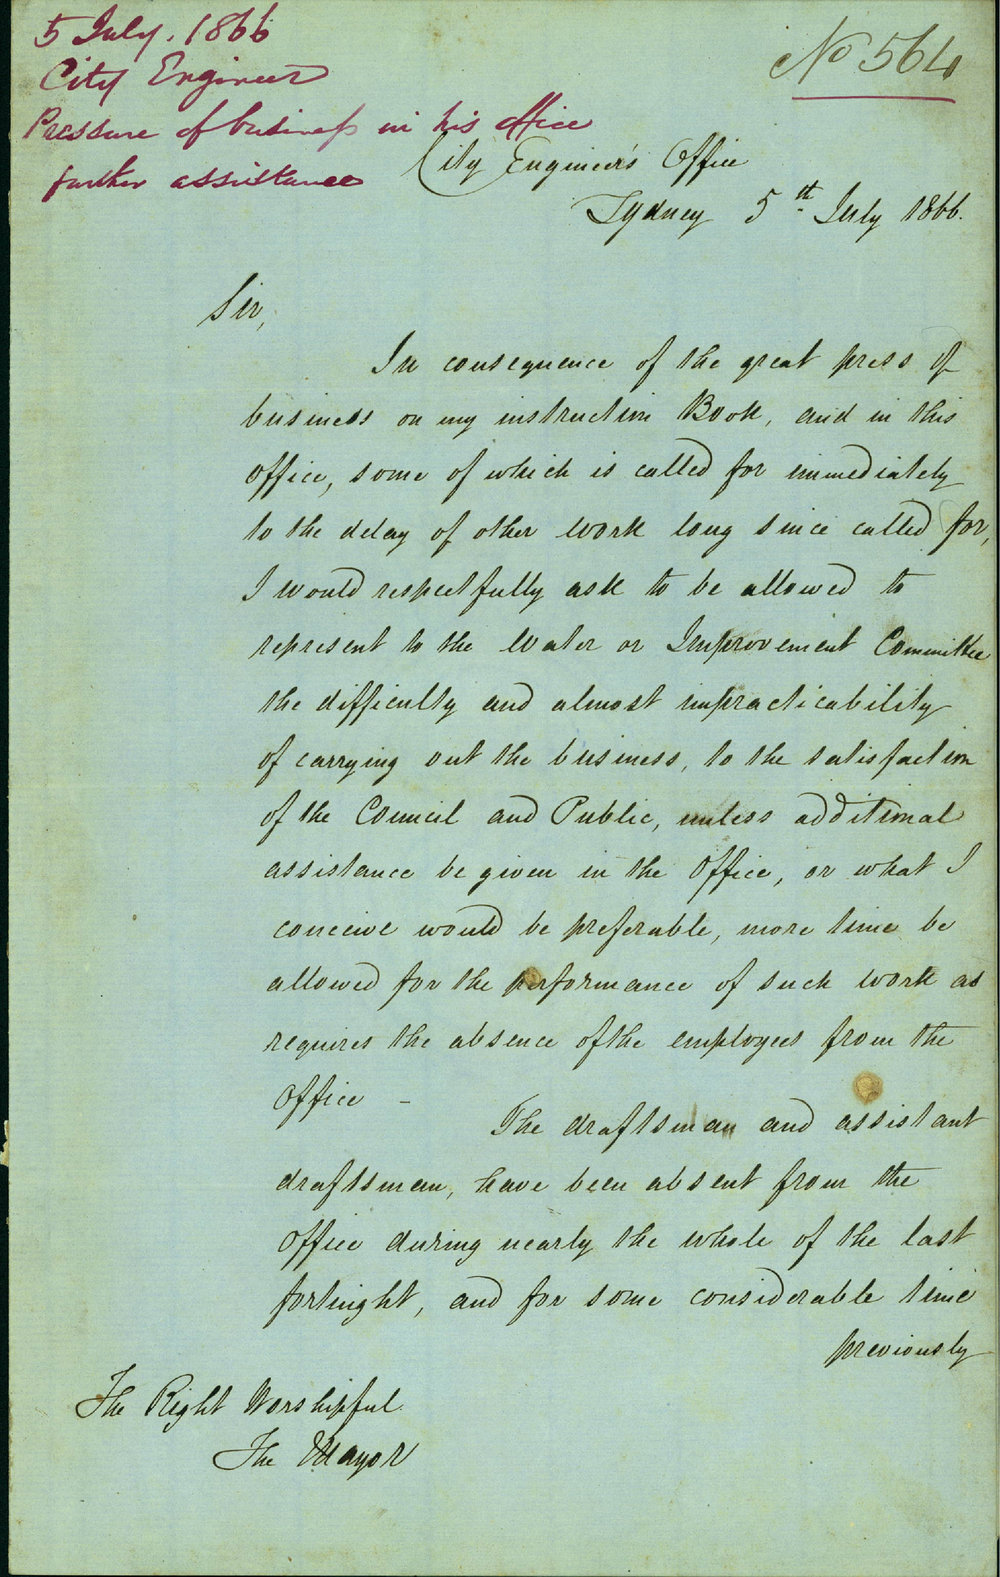 5 July. 1866
City Engineer
Pressure of business in his office
further assistance
No 564
City Engineer's Office
Sydney 5th July 1866.
Sir,
In consequence of the great press of
business on my instruction Book, and in this
office, some of which is called for immediately
to the delay of other work long since called for,
I would respectfully ask to be allowed to
represent to the Water or Improvement Committee
the difficulty and almost impracticability
of carrying out the business, to the satisfaction
of the Council and Public, unless additional
assistance be given in the Office, or what I
conceive would be preferable, more time be
allowed for the performance of such work as
requires the absence of the employees from the
Office -
The draftsman and assistant
draftsman, have been absent from the
Office during nearly the whole of the last
fortnight, and for some considerable time
previously
The Right Worshipful
The Mayor